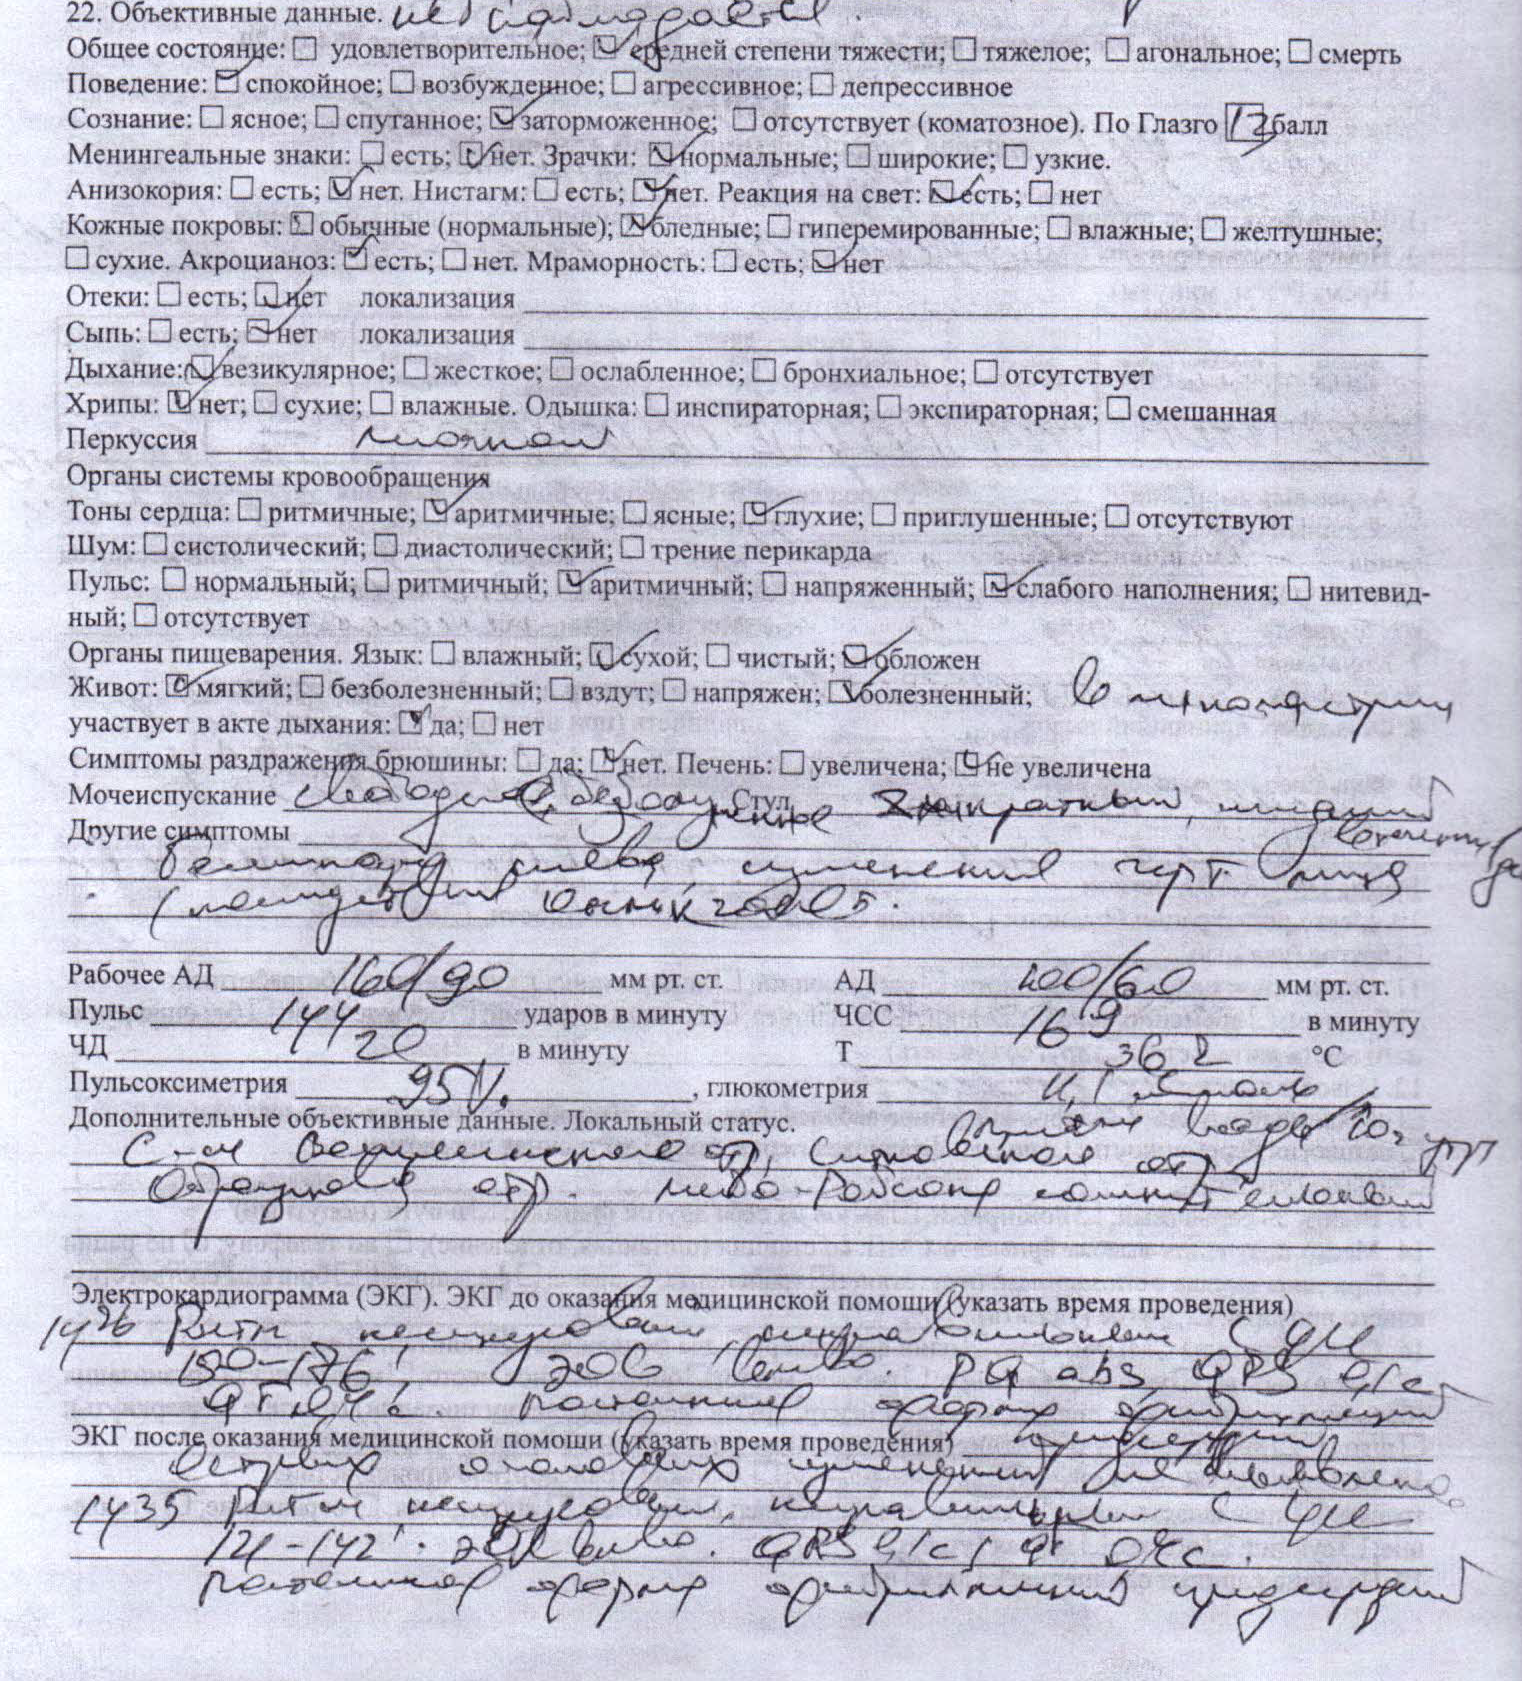 22. Объективные данные.
Общее состояние: ☐ удовлетворительное; ☑ средней степени тяжести; ☐ тяжелое; ☐ агональное; ☐ смерть
Поведение: ☑ спокойное; ☐ возбужденное; ☐ агрессивное; ☐ депрессивное
Сознание: ☐ ясное; ☐ спутанное; ☑ заторможенное; ☐ отсутствует (коматозное). По Глазго 12 балл
Менингеальные знаки: ☐ есть; ☑ нет. Зрачки: ☑ нормальные; ☐ широкие; ☐ узкие.
Анизокория: ☐ есть; ☑ нет. Нистагм: ☐ есть; ☑ нет. Реакция на свет: ☑ есть; ☐ нет
Кожные покровы: ☑ обычные (нормальные); ☑ бледные; ☐ гиперемированные; ☐ влажные; ☐ желтушные;
☐ сухие. Акроцианоз: ☑ есть; ☐ нет. Мраморность: ☐ есть; ☑ нет
Отеки: ☐ есть; ☑ нет локализация
Сыпь: ☐ есть; ☑ нет локализация
Дыхание: ☑ везикулярное; ☐ жесткое; ☐ ослабленное; ☐ бронхиальное; ☐ отсутствует
Хрипы: ☑ нет; ☐ сухие; ☐ влажные. Одышка: ☐ инспираторная; ☐ экспираторная; ☐ смешанная
Перкуссия
Органы системы кровообращения
Тоны сердца: ☐ ритмичные; ☑ аритмичные; ☐ ясные; ☑ глухие; ☐ приглушенные; ☐ отсутствуют
Шум: ☐ систолический; ☐ диастолический; ☐ трение перикарда
Пульс: ☐ нормальный; ☐ ритмичный; ☑ аритмичный; ☐ напряженный; ☑ слабого наполнения; ☐ нитевид-
ный; ☐ отсутствует
Органы пищеварения. Язык: ☐ влажный; ☑ сухой; ☐ чистый; ☑ обложен
Живот: ☑ мягкий; ☐ безболезненный; ☐ вздут; ☐ напряжен; ☑ болезненный; в
участвует в акте дыхания: ☑ да; ☐ нет
Симптомы раздражения брюшины: ☐ да; ☑ нет. Печень: ☐ увеличена; ☑ не увеличена
Мочеиспускание свободное, безболезненное Стул кратный, жидкий
Другие симптомы
слева, изменений черт лица
Рабочее АД 160/90 мм рт. ст. АД 100/60 мм рт. ст.
Пульс 144 ударов в минуту ЧСС 169 в минуту
ЧД 20 в минуту Т 36 2 °С
Пульсоксиметрия 95%. , глюкометрия 11,1 ммоль
Дополнительные объективные данные. Локальный статус.
С-м Воскресенского отр, Ситковского отр
Образцова отр. Мейо-Робсона сомнительный
Электрокардиограмма (ЭКГ). ЭКГ до оказания медицинской помощи (указать время проведения)
14 26 Ритм несинусовый, неправильный с ЧСС
150-176', ЭОС влево. PQ abs QRS 0,1c
QT 0,4c. Постоянная форма фибрилляции
предсердий
ЭКГ после оказания медицинской помощи (указать время проведения)
Острых очаговых изменений не выявлено.
14 35 Ритм несинусовый, неправильный с ЧСС
121-142'. ЭОС влево. QRS 0,1c,
Постоянная форма фибрилляции предсердий